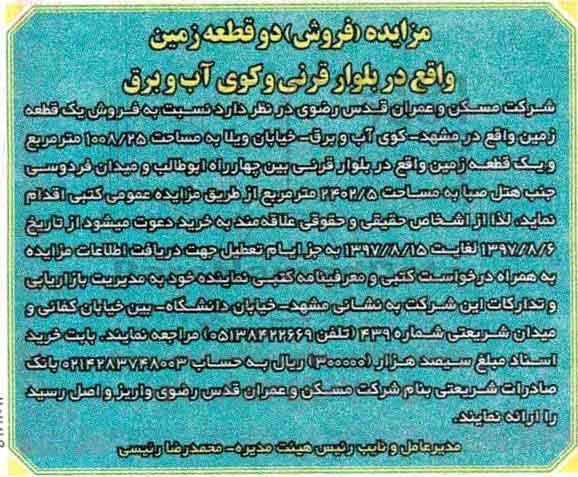 مزایده (فروش) دو قطعه زمین
واقع در بلوار قرنی و کوی آب و برق
شرکت مسکن و عمران قدس رضوی در نظر دارد نسبت به فروش یک قطعه
زمین واقع در مشهد- کوی آب و برق- خیابان ویلا به مساحت ۱۰۰۸/۲۵ مترمربع
و یک قطعه زمین واقع در بلوار قرنی بین چهارراه ابوطالب و میدان فردوسی
جنب هتل صبا به مساحت ۲۴۰۲/۵ مترمربع از طریق مزایده عمومی کتبی اقدام
نماید. لذا از اشخاص حقیقی و حقوقی علاقه‌مند به خرید دعوت میشود از تاریخ
۱۳۹۷//۸/۶ لغایت ۱۳۹۷//۸/۱۵ به جز ایام تعطیل جهت دریافت اطلاعات مزایده
به همراه درخواست کتبی و معرفینامه کتبی نماینده خود به مدیریت بازاریابی
و تدارکات این شرکت به نشانی مشهد- خیابان دانشگاه- بین خیابان کفائی و
میدان شریعتی شماره ۴۳۹ (تلفن ۰۵۱۳۸۴۲۲۶۶۹) مراجعه نمایند. بابت خرید
اسناد مبلغ سیصد هزار (۳۰۰۰۰۰) ریال به حساب ۰۲۱۴۲۸۳۷۴۸۰۰۳ بانک
صادرات شریعتی بنام شرکت مسکن و عمران قدس رضوی واریز و اصل رسید
را ارائه نمایند.
مدیرعامل و نایب رئیس هیئت مدیره- محمدرضا رئیسی